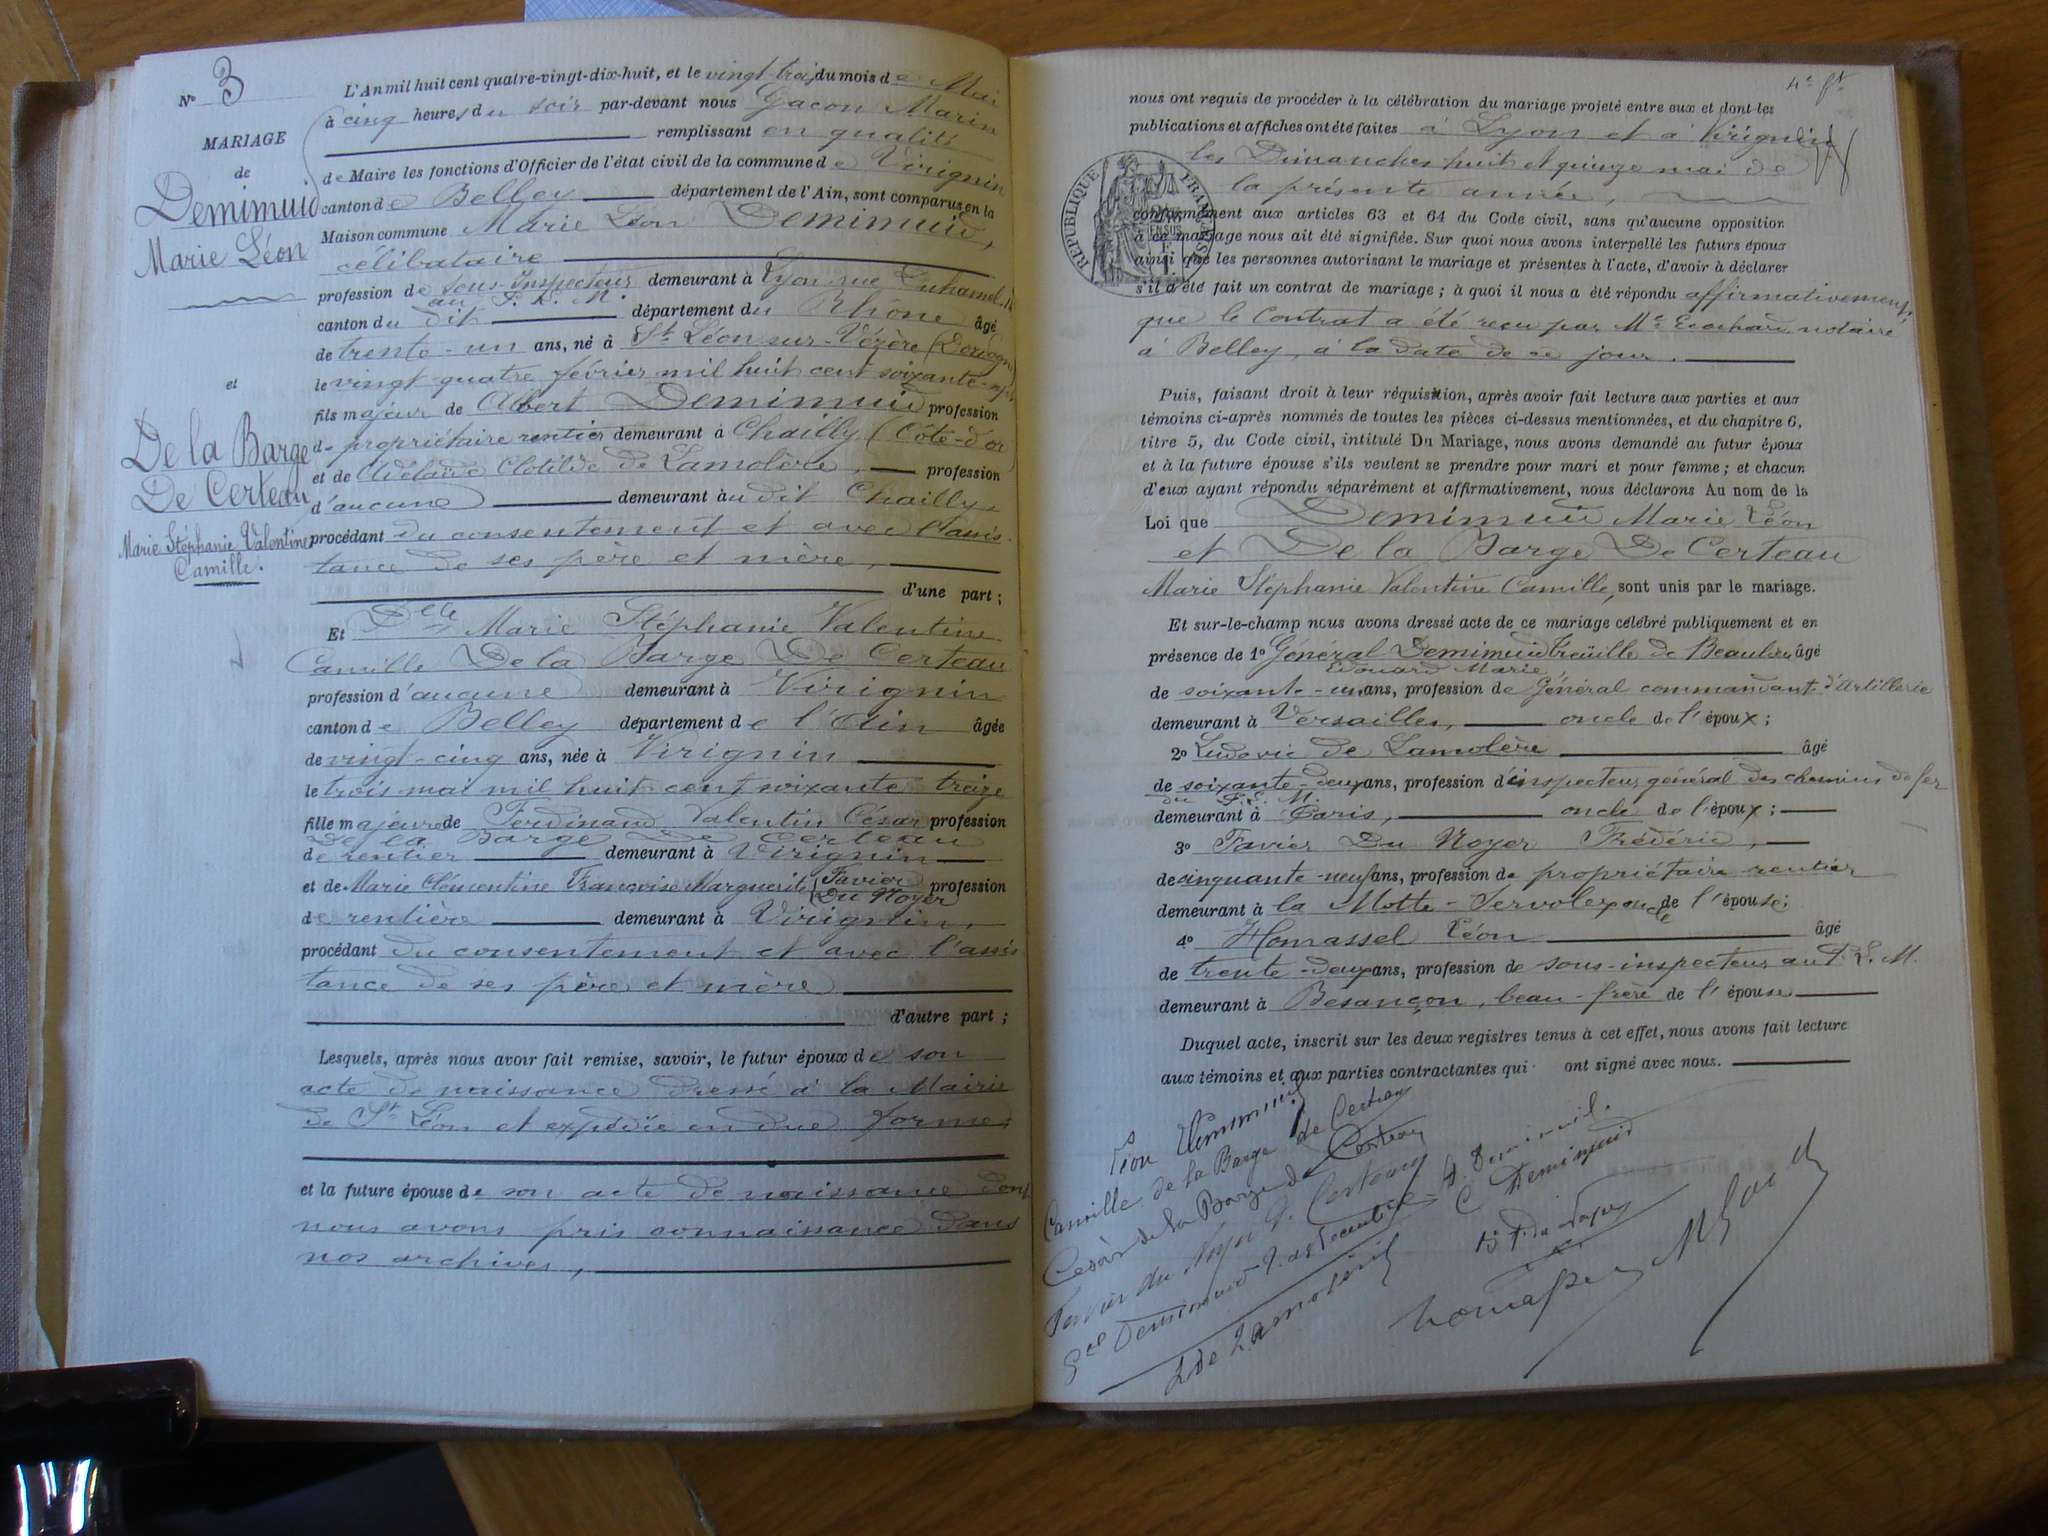 Nº 3
MARIAGE
de
Demimuid
Marie Léon
et
De la Barge
De Certeau
Marie Stéphanie Valentine
Camille.
L'An mil huit cent quatre-vingt-dix-huit, et le vingt-trois du mois de Mai
à cinq heures du soir par-devant nous Gacon Marin
remplissant en qualité
de Maire les fonctions d'Officier de l'état civil de la commune de Virignin
canton de Belley département de l'Ain, sont comparus en la
Maison commune Marie Léon Demimuid,
célibataire
profession de sous-Inspecteur demeurant à Lyon rue Duhamel,
au P. L. M.
canton du dit département du Rhône âgé
de trente-un ans, né à St Léon-sur-Vézère (Dordogne)
le vingt-quatre février mil huit cent soixante-sept
fils majeur de Albert Demimuid profession
de propriétaire rentier demeurant à Chailly (Côte-d'or)
et de Adélaïde Clotilde de Lamolère, profession
d'aucune demeurant au dit Chailly,
procédant du consentement et avec l'assis-
tance de ses père et mère,
d'une part ;
Et Delle Marie Stéphanie Valentine
Camille De la Barge De Certeau
profession d'aucune demeurant à Virignin
canton de Belley département de l'Ain âgée
de vingt-cinq ans, née à Virignin
le trois mai mil huit cent soixante treize
fille majeure de Ferdinand Valentin César profession
De la Barge de Certeau
de rentier demeurant à Virignin
et de Marie Clémentine Françoise Marguerite (Favier Du Noyer) profession
de rentière demeurant à Virignin,
procédant du consentement et avec l'assis
tance de ses père et mère
d'autre part ;
Lesquels, après nous avoir fait remise, savoir, le futur époux de son
acte de naissance dressé à la Mairie
de St Léon et expédié en due forme
et la future épouse de son acte de naissance dont
nous avons pris connaissance dans
nos archives,
nous ont requis de procéder à la célébration du mariage projeté entre eux et dont les
publications et affiches ont été faites à Lyon et à Virignin
les Dimanches huit et quinze mai de
la présente année,
RÉPUBLIQUE FRANÇAISE
conformément aux articles 63 et 64 du Code civil, sans qu'aucune opposition
à ce mariage nous ait été signifiée. Sur quoi nous avons interpellé les futurs époux
ainsi que les personnes autorisant le mariage et présentes à l'acte, d'avoir à déclarer
s'il a été fait un contrat de mariage ; à quoi il nous a été répondu affirmativement,
que le Contrat a été reçu par Me notaire
à Belley, à la date de ce jour.
Puis, faisant droit à leur réquisition, après avoir fait lecture aux parties et aux
témoins ci-après nommés de toutes les pièces ci-dessus mentionnées, et du chapitre 6,
titre 5, du Code civil, intitulé Du Mariage, nous avons demandé au futur époux
et à la future épouse s'ils veulent se prendre pour mari et pour femme ; et chacun
d'eux ayant répondu séparément et affirmativement, nous déclarons Au nom de la
Loi que Demimuid Marie Léon
et De la Barge De Certeau
Marie Stéphanie Valentine Camille, sont unis par le mariage.
Et sur-le-champ nous avons dressé acte de ce mariage célébré publiquement et en
présence de 1º Général Demimuid Treüille de Beaulieu âgé
Edouard Marie
de soixante-un ans, profession de Général commandant d'Artillerie
demeurant à Versailles, oncle de l'époux ;
2º Ludovic de Lamolère âgé
de soixante-deux ans, profession d'inspecteur général des chemins de fer
du P. L. M.
demeurant à Paris, oncle de l'époux ;
3º Favier Du Noyer Frédéric,
de cinquante-neuf ans, profession de propriétaire rentier
demeurant à la Motte-Servolex oncle de l'épouse;
4º Homassel Léon âgé
de trente-deux ans, profession de sous-inspecteur au P. L. M.
demeurant à Besançon, beau-frère de l'épouse
Duquel acte, inscrit sur les deux registres tenus à cet effet, nous avons fait lecture
aux témoins et aux parties contractantes qui ont signé avec nous.
Léon Demimuid
Camille de la Barge de Certeau
César de la Barge de Certeau
Favier du Noyer de Certeau
C Demimuid
L de Lamolère
Homassel
M Gacon